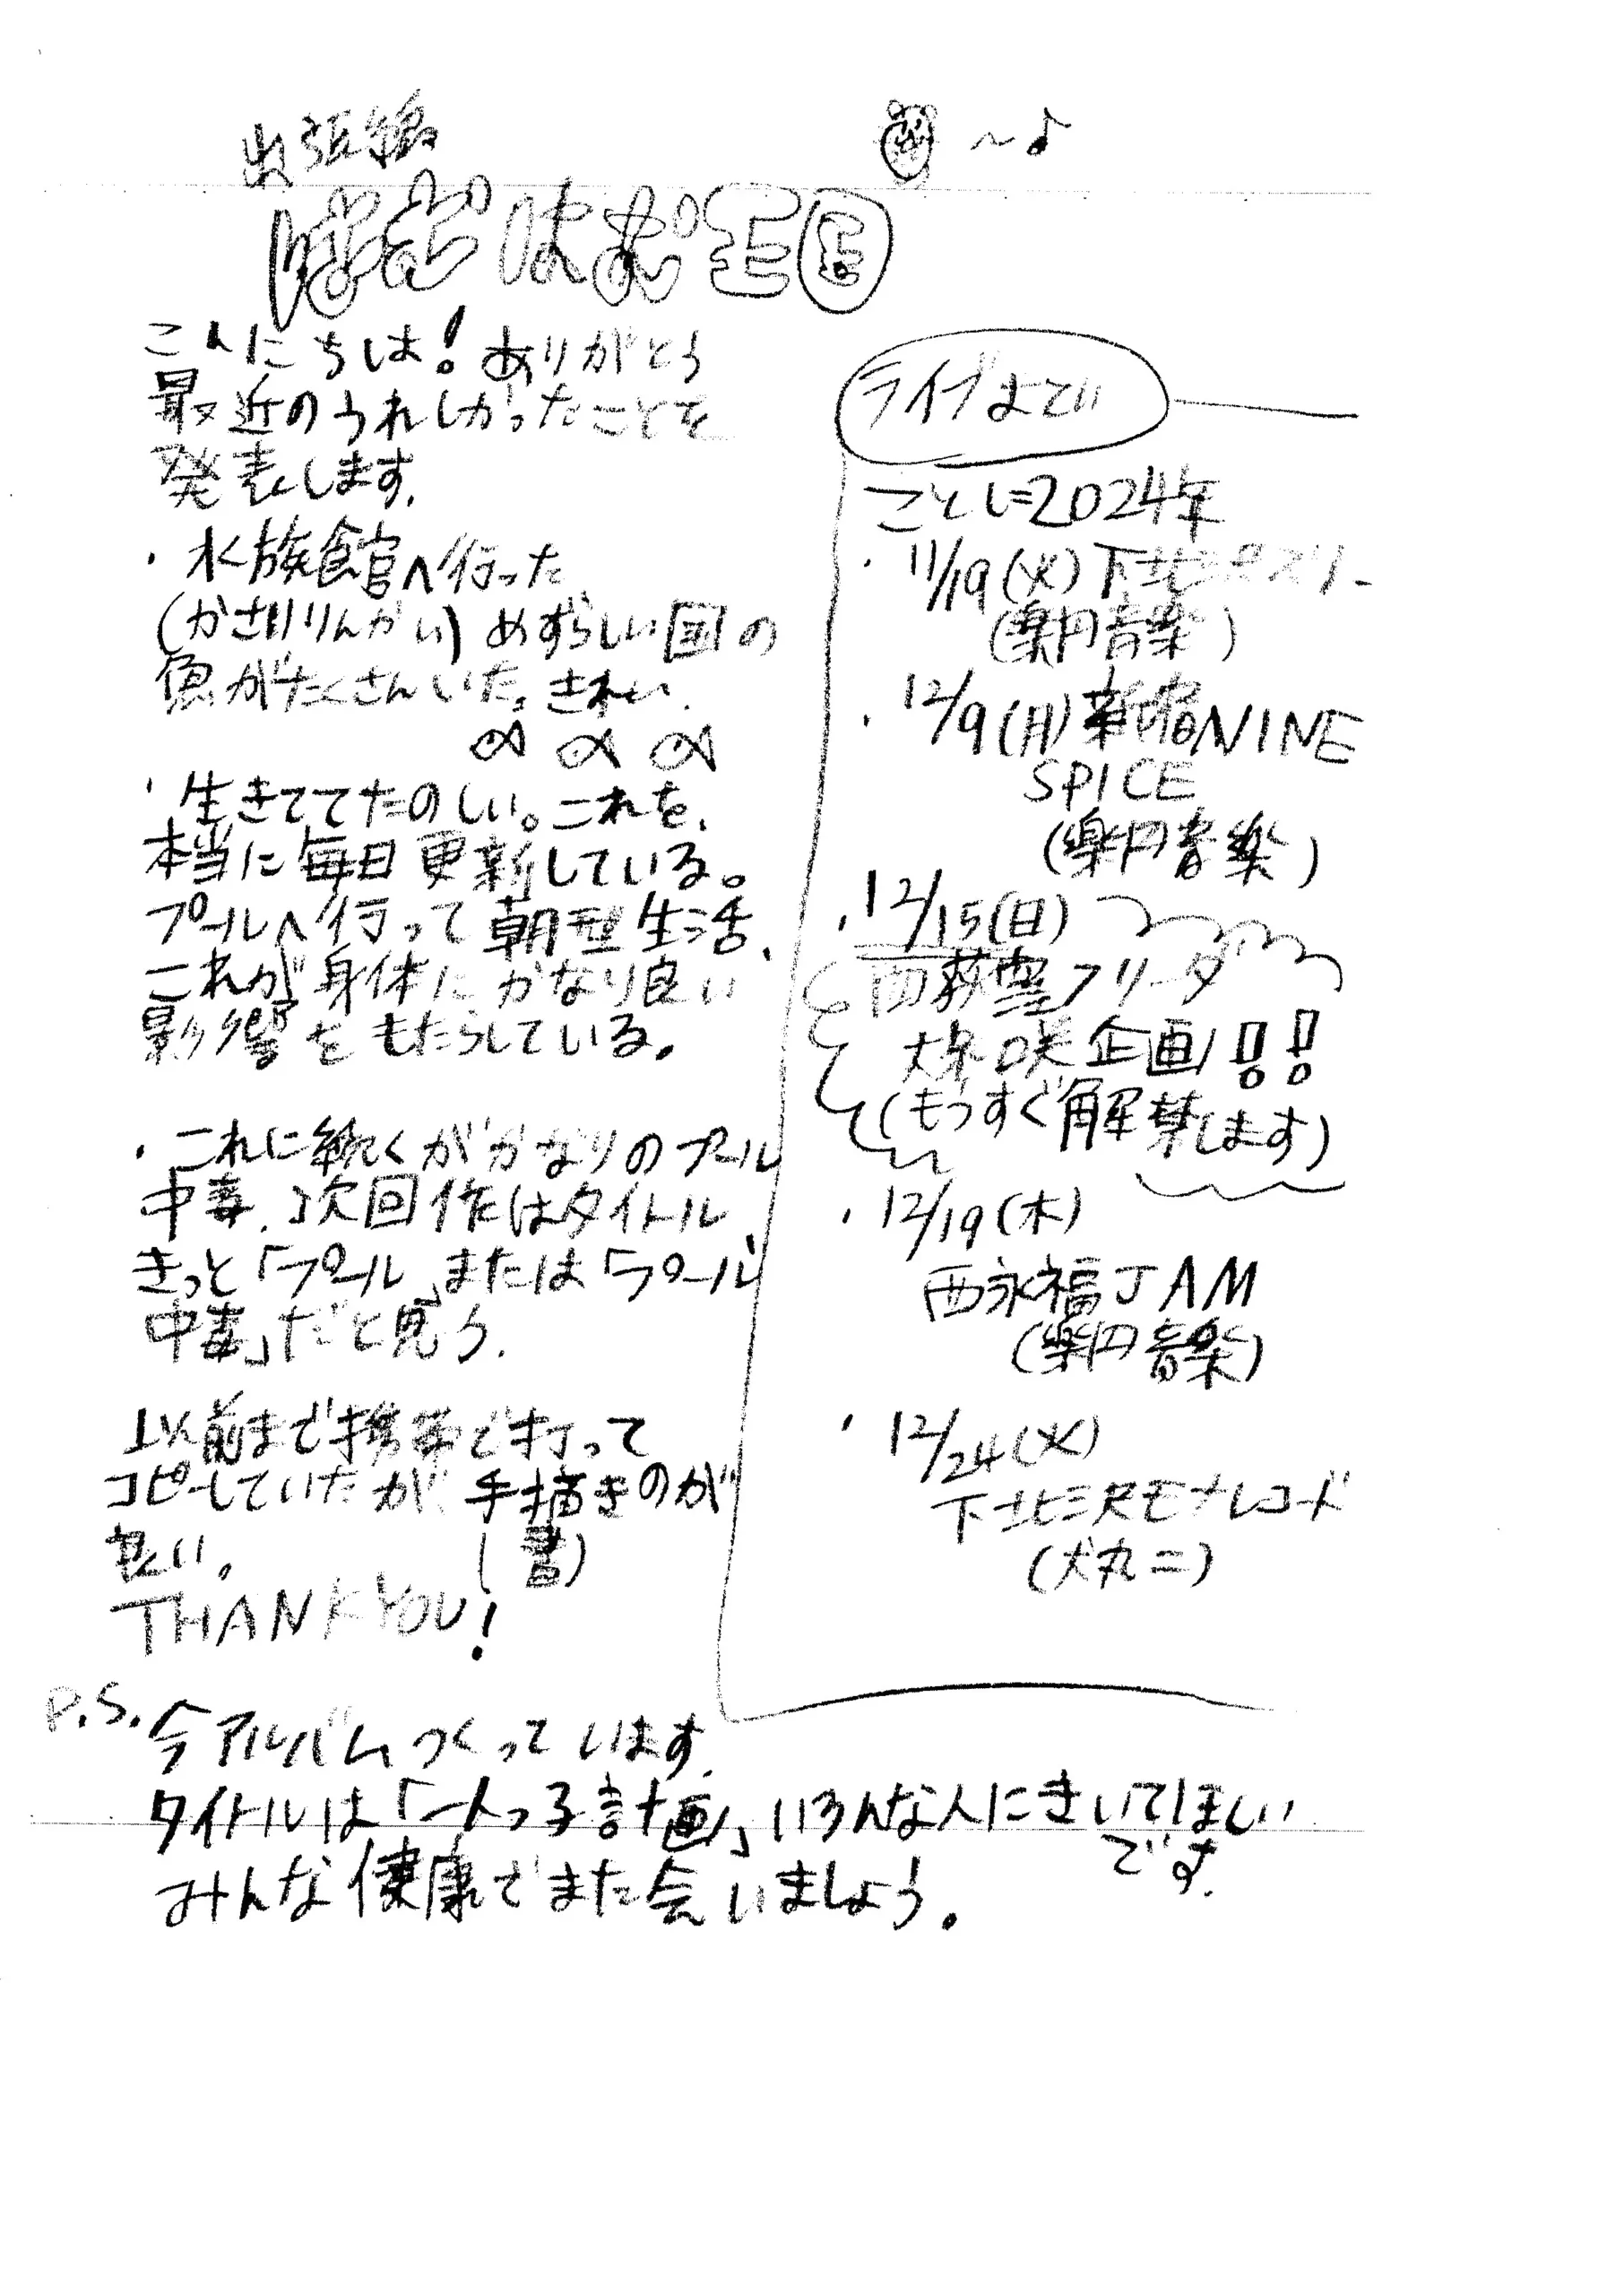 出張編
こんにちは！ありがとう
最近のうれしかったことを
発表します.
・水族館へ行った
(かさいりんかい)めずらしい国の
魚がたくさんいた。きれい.
・生きててたのしい。これを、
本当に毎日更新している。
プールへ行って朝型生活、
これが身体にかなり良い
影響をもたらしている。
・これに続くがかなりのプール
中毒.次回作はタイトル
きっと「プール」または「プール
中毒」だと思う.
以前まで携帯で打って
コピーしていたが、手描きのが
良い。(書)
THANK YOU!
ライブよてい
ことし=2024年
・11/19(火)下北沢スリー
(楽円音楽)
・12/9(月)新宿NINE
SPICE
(楽円音楽)
・12/15(日)
西荻窪フリーダ
企画!!
(もうすぐ解禁します)
・12/19(木)
西永福JAM
(楽円音楽)
・12/24(火)
下北沢モナレコード
(犬丸ニ)
P.S.今アルバムつくっています.
タイトルは「一人っ子計画」いろんな人にきいてほしい
です.
みんな健康でまた会いましょう。